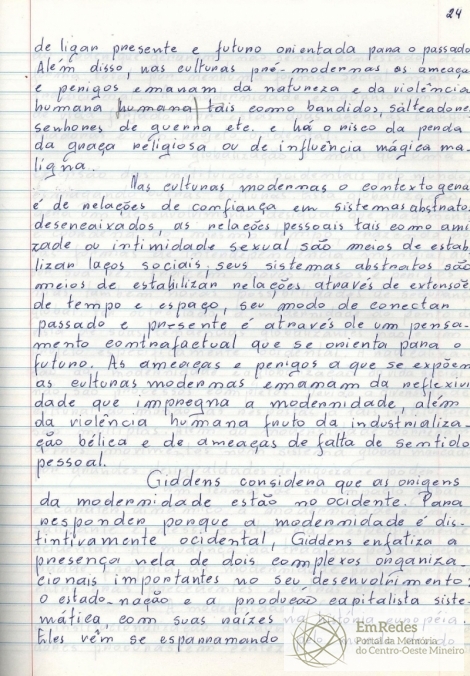 24
de ligar presente e futuro orientada para o passado
Além disso, nas culturas pré-modernas as ameaça
e perigos emanam da natureza e da violência
humana |humana| tais como bandidos, salteadore
senhores de guerra etc. e há o risco da perda
da graça religiosa ou de influência mágica ma-
ligna.
Nas culturas modernas o contexto gera
é de relações de confiança em sistemas abstrato
desencaixados, as relações pessoais tais como ami
zade ou intimidade sexual são meios de estab
lizar laços sociais, seus sistemas abstratos são
meios de estabilizar relações através de extensõe
de tempo e espaço, seu modo de conectar
passado e presente é através de um pensa-
mento contrafactual que se orienta para o
futuro. As ameaças e perigos a que se expõem
as culturas modernas emanam da reflexivi
dade que impregna a modernidade, além
da violência humana fruto da industrializa-
ção bélica e de ameaças de falta de sentido
pessoal.
Giddens considera que as origens
da modernidade estão no ocidente. Para
responder porque a modernidade é dis-
tintivamente ocidental, Giddens enfatiza a
presença nela de dois complexos organiza-
cionais importantes no seu desenvolvimento:
o estado-nação e a produção capitalista siste-
mática, com suas raízes na história européia.
Eles vêm se esparramando pelo mundo
EmRedes
Portal da Memória
do Centro-Oeste Mineiro